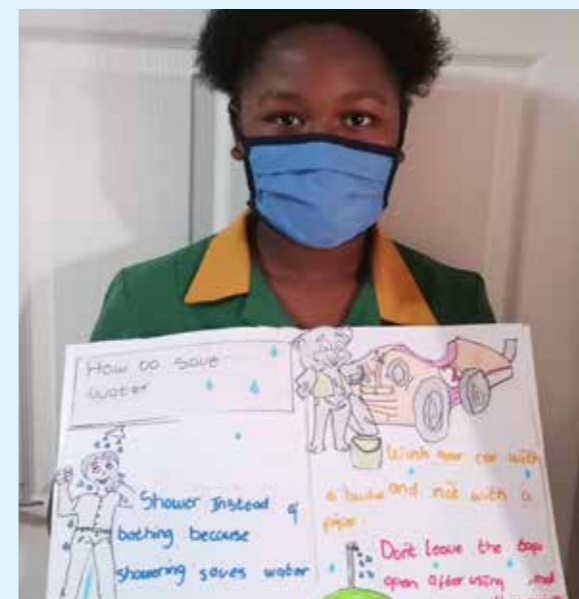 How to save
water
Shower Instead of
bathing because
showering saves water
Wash your car with
a bucket and not with a
pipe
Don't leave the taps
open after using